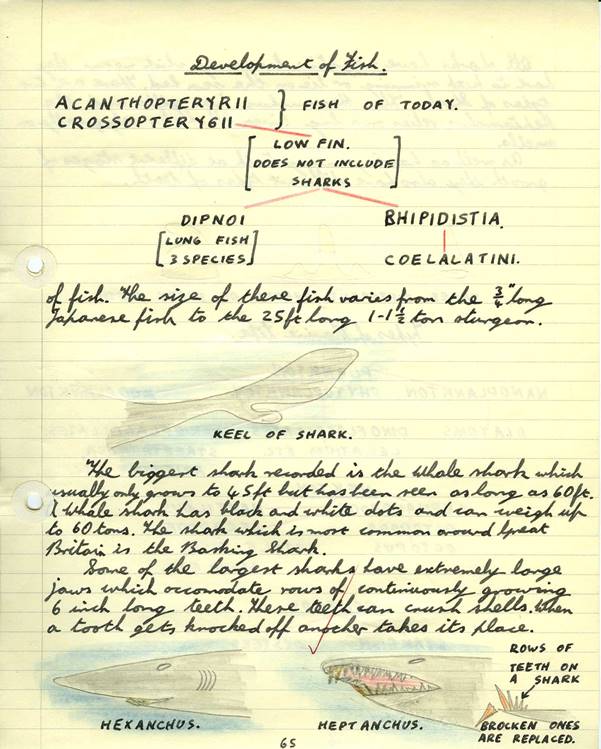 Development of Fish.
ACANTHOPTERYRII } FISH OF TODAY.
CROSSOPTERYGII
[LOW FIN.
DOES NOT INCLUDE
SHARKS]
DIPNOI
[LUNG FISH
3 SPECIES]
BHIPIDISTIA.
COELALATINI.
of fish. The size of these fish varies from the 3/4" long
Japanese fish to the 25ft long 1-1 1/2 ton sturgeon.
KEEL OF SHARK.
The biggest shark recorded is the whale shark which
usually only grows to 45ft but has been seen as long as 60ft.
A whale shark has black and white dots and can weigh up
to 60 tons. The shark which is most common around Great
Britain is the Basking Shark.
Some of the largest sharks have extremely large
jaws which accomodate rows of continuously growing
6 inch long teeth. These teeth can crush shells. When
a tooth gets knocked off another takes its place.
HEXANCHUS.
HEPTANCHUS.
ROWS OF
TEETH ON
A SHARK
BROCKEN ONES
ARE REPLACED.
65